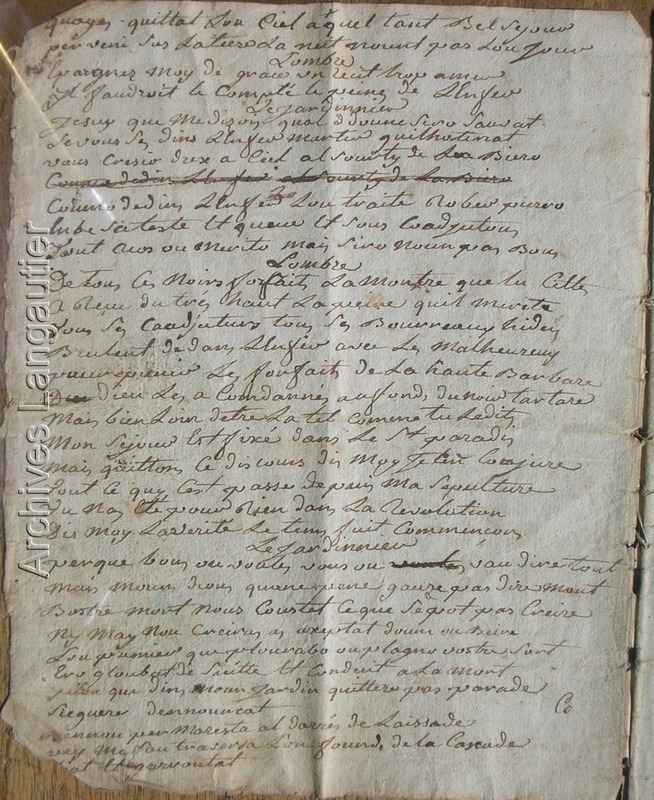 quayes quittat Lou Ciel aquel tant Bel Sejour
per veni Sus La terre La neit nouint pas Lou Jour
Lombre
Epargnez Moy de grace un recit trop amer
Il faudroit le Compté le peine de L'Enfer
Le Jardinnier
Jesux que me dison
Se vous Es dins L'Enfer Martir guilhotinat
vous Cresio drex a Ciel al Sourty de La Biero
Couro dedins L'Enfer Lou traite Robespierro
Inbe Sa teste Et queue Et Sous Coadjutous
tout aco ou Merito mais Siro noun pas Bous
Lombre
De tous Ces Noirs forfaits La Montre que tu Cittes
a Reçu du tres haut La peine quil Merite
tous Ses Coadjuteurs tous Ses Bourreaux hideux
Brulent dedans L'Enfer avec Les Malheureux
pour punir Le forfait de La haute Barbare
Dieu Les a Condannés au fonds du noir tartare
Mais bien Loin detre La tel comme tu Ledits
Mon Sejour Est fixé dans Le St paradis
Mais quittons Ce discours dis Moy Je ten Conjure
tout Ce quy C'est passe depuis Ma Sepulture
tu Nas Eté pour Rien dans La Revolution
Dis Moy La verité Le tems fuit Commençons
Le Jardinnier
perque bous ou voules vous ou vau dire tout
Mais moun dious quane pene gauze pas dire Mout
Bostre Mort Nous Coustet Ce que Se pot pas Creire
Ny May Nou Creiras as axeptat doun ou Beire
Lou premier que plourabo ou plagno vostre Sort
Ero gloubat de Suitte Et Conduit a La Mort
que dins moun Jardin quittere pas parade
Sieguere dennouncat
per Maresta al darrés de Laissade
me fau traversa Lou founds de la Cascade
Et garroutat
Co
Archives Langautier